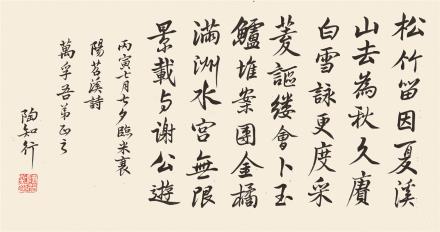 松竹留因夏溪
山去為秋久賡
白雪詠更度采
菱謳縷會卜玉
鱸堆案團金橘
滿洲水宮無限
景載与謝公遊
丙寅七月七夕臨米襄
陽苕溪詩
萬孚吾弟正之
陶知行